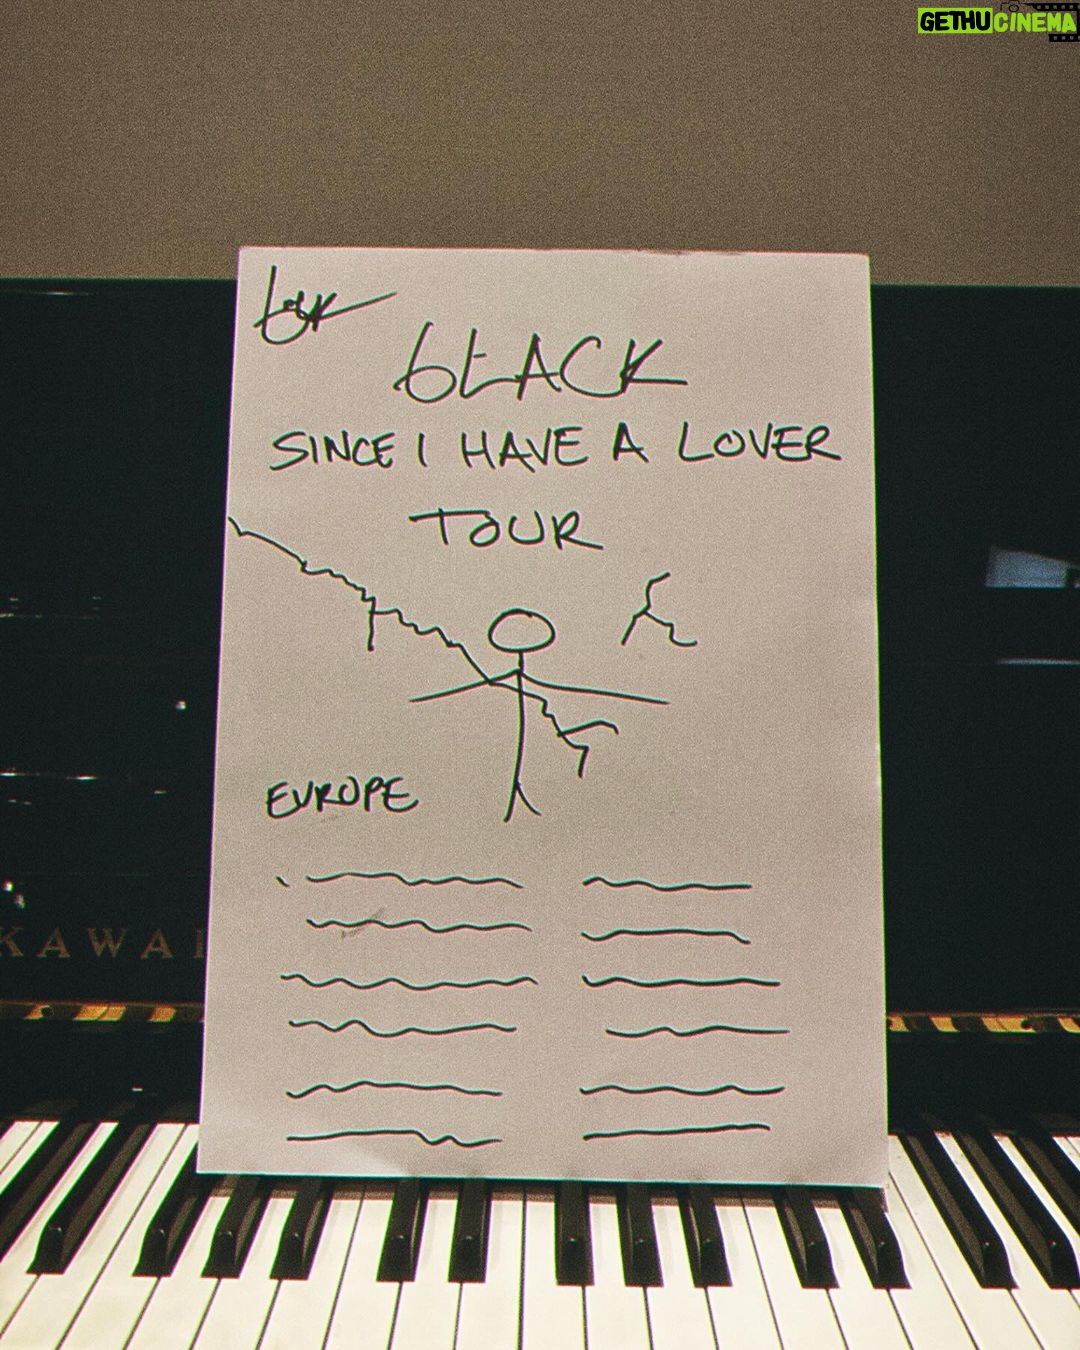 GETHUCINEMA
6LACK
SINCE I HAVE A LOVER
TOUR
EUROPE
KAWAI